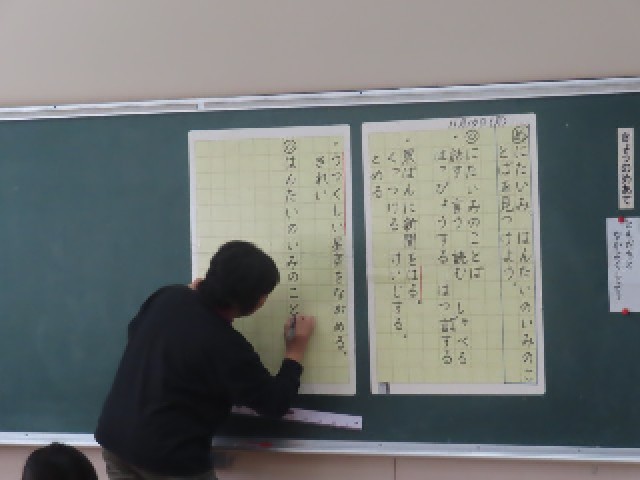 きょうのめあて
めにたいみ はんたいのいみのこ
とばを見つけよう。
にたいみのことば
話す 言う 読む しゃべる
はっぴょうする はつ言する
黒ばんに新聞をはる。
くっつける けいじする。
とめる
うつくしい星空をながめる。
きれい
はんたいのいみのこと